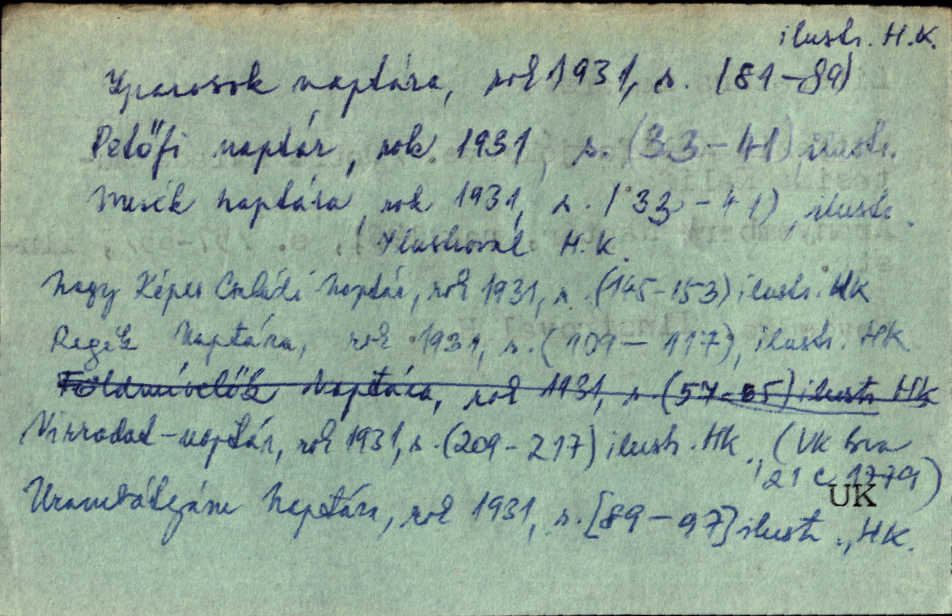 ilustr. H.K.
Iparosok naptára, rok 1931, s. (81-89)
Petőfi naptár, rok 1931, s. (33-41) ilustr.
Mesék naptára, rok 1931, s. (33-41), ilustr.
Ilustroval H.K.
Nagy Képes Családi Naptár, rok 1931, s. (145-153) ilustr. HK
Regék Naptára, rok 1931, s. (109-117), ilustr. HK.
Földmívelők Naptára, rok 1931, s. (57-65) ilustr HK
Virradat-naptár, rok 1931, s. (209-217) ilustr. HK., (UK Bra
21 C 1779)
UK
Naptára, rok 1931, s. [89-97] ilustr., HK.